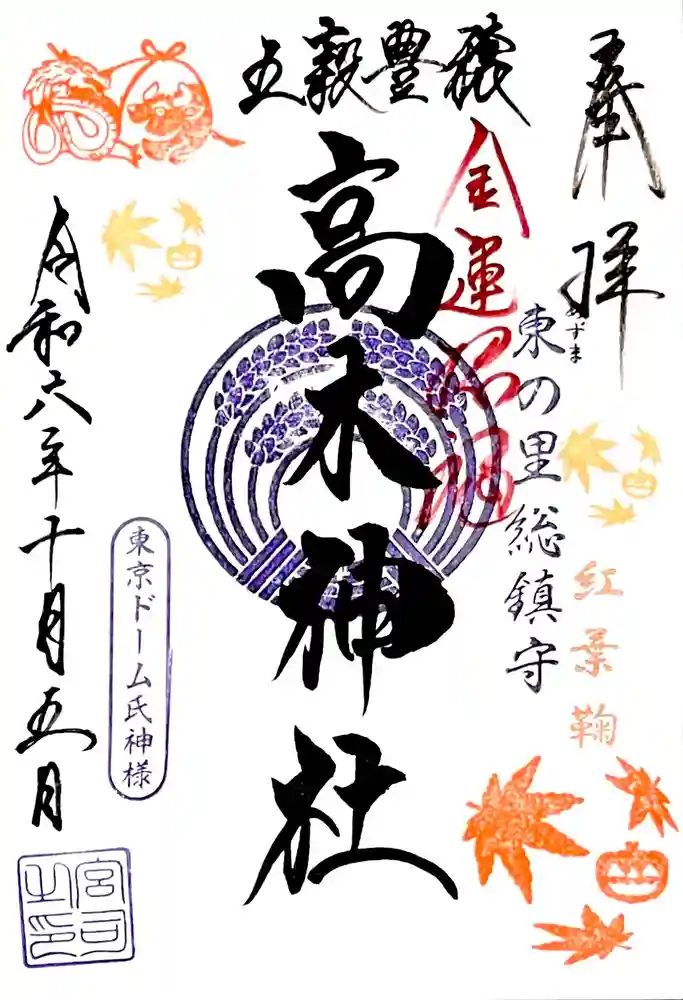 奉拝
あずま
東の里総鎮守
紅葉鞠
金運招福
五穀豊穣
高木神社
令和六年十月五日
東京ドーム氏神様
宮司之印